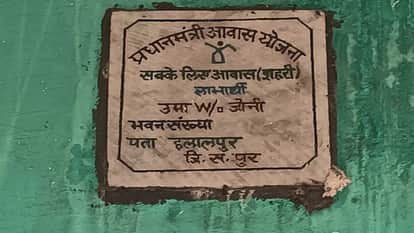 प्रधानमंत्री आवास योजना
सबके लिए आवास(शहरी)
लाभार्थी
उमा W/o जोनी
भवन संख्या
पता हलालपुर
त्रि. स. पुर